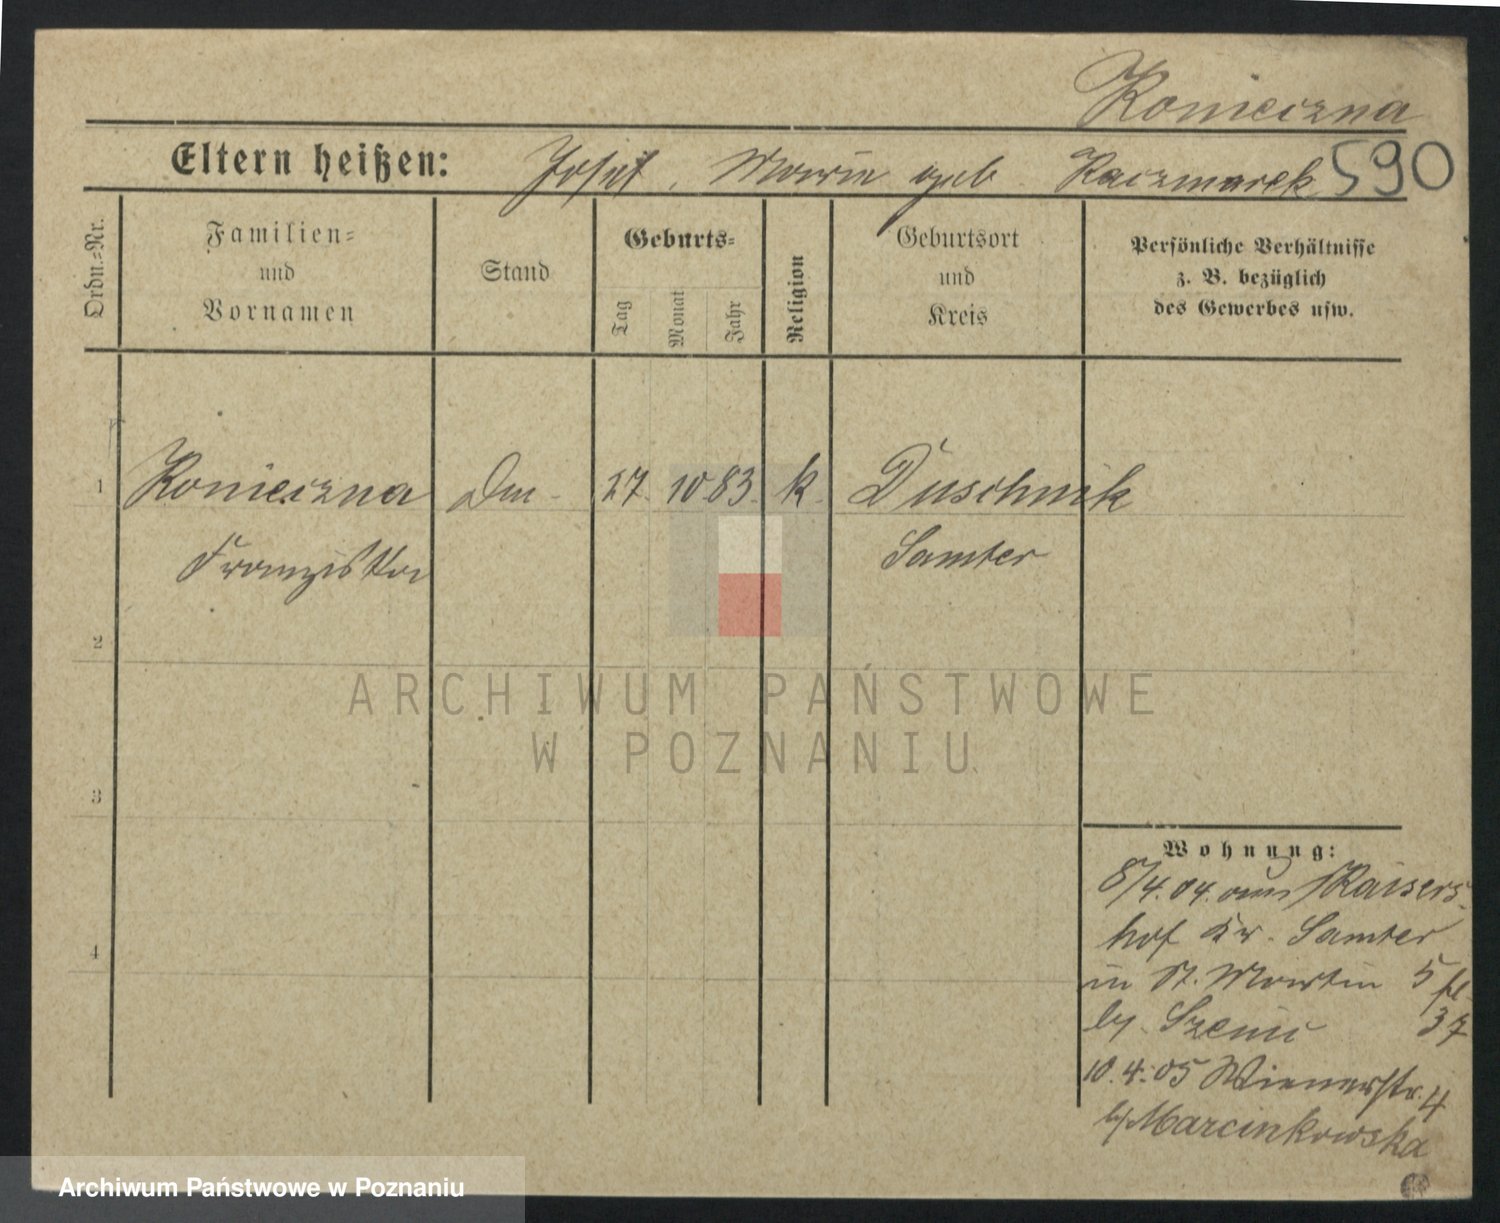 Konieczna
Eltern heißen: Josef, Marie geb. Kaczmarek 590
Ordn.-Nr.
Familien-
und
Vornamen
Stand
Geburts-
Tag
Monat
Jahr
Religion
Geburtsort
und
Kreis
Persönliche Verhältnisse
z. B. bezüglich
des Gewerbes usw.
1 Konieczna 27. 10. 83. k. Duschnik
Franziska Samter
2
3
4
Wohnung:
8/4.04. aus Kaisers-
hof Kr. Samter
in St. Martin 5
by. 37
10.4.05 Wienerstr. 4
by Marcinkowska
ARCHIWUM PAŃSTWOWE
W POZNANIU
Archiwum Państwowe w Poznaniu